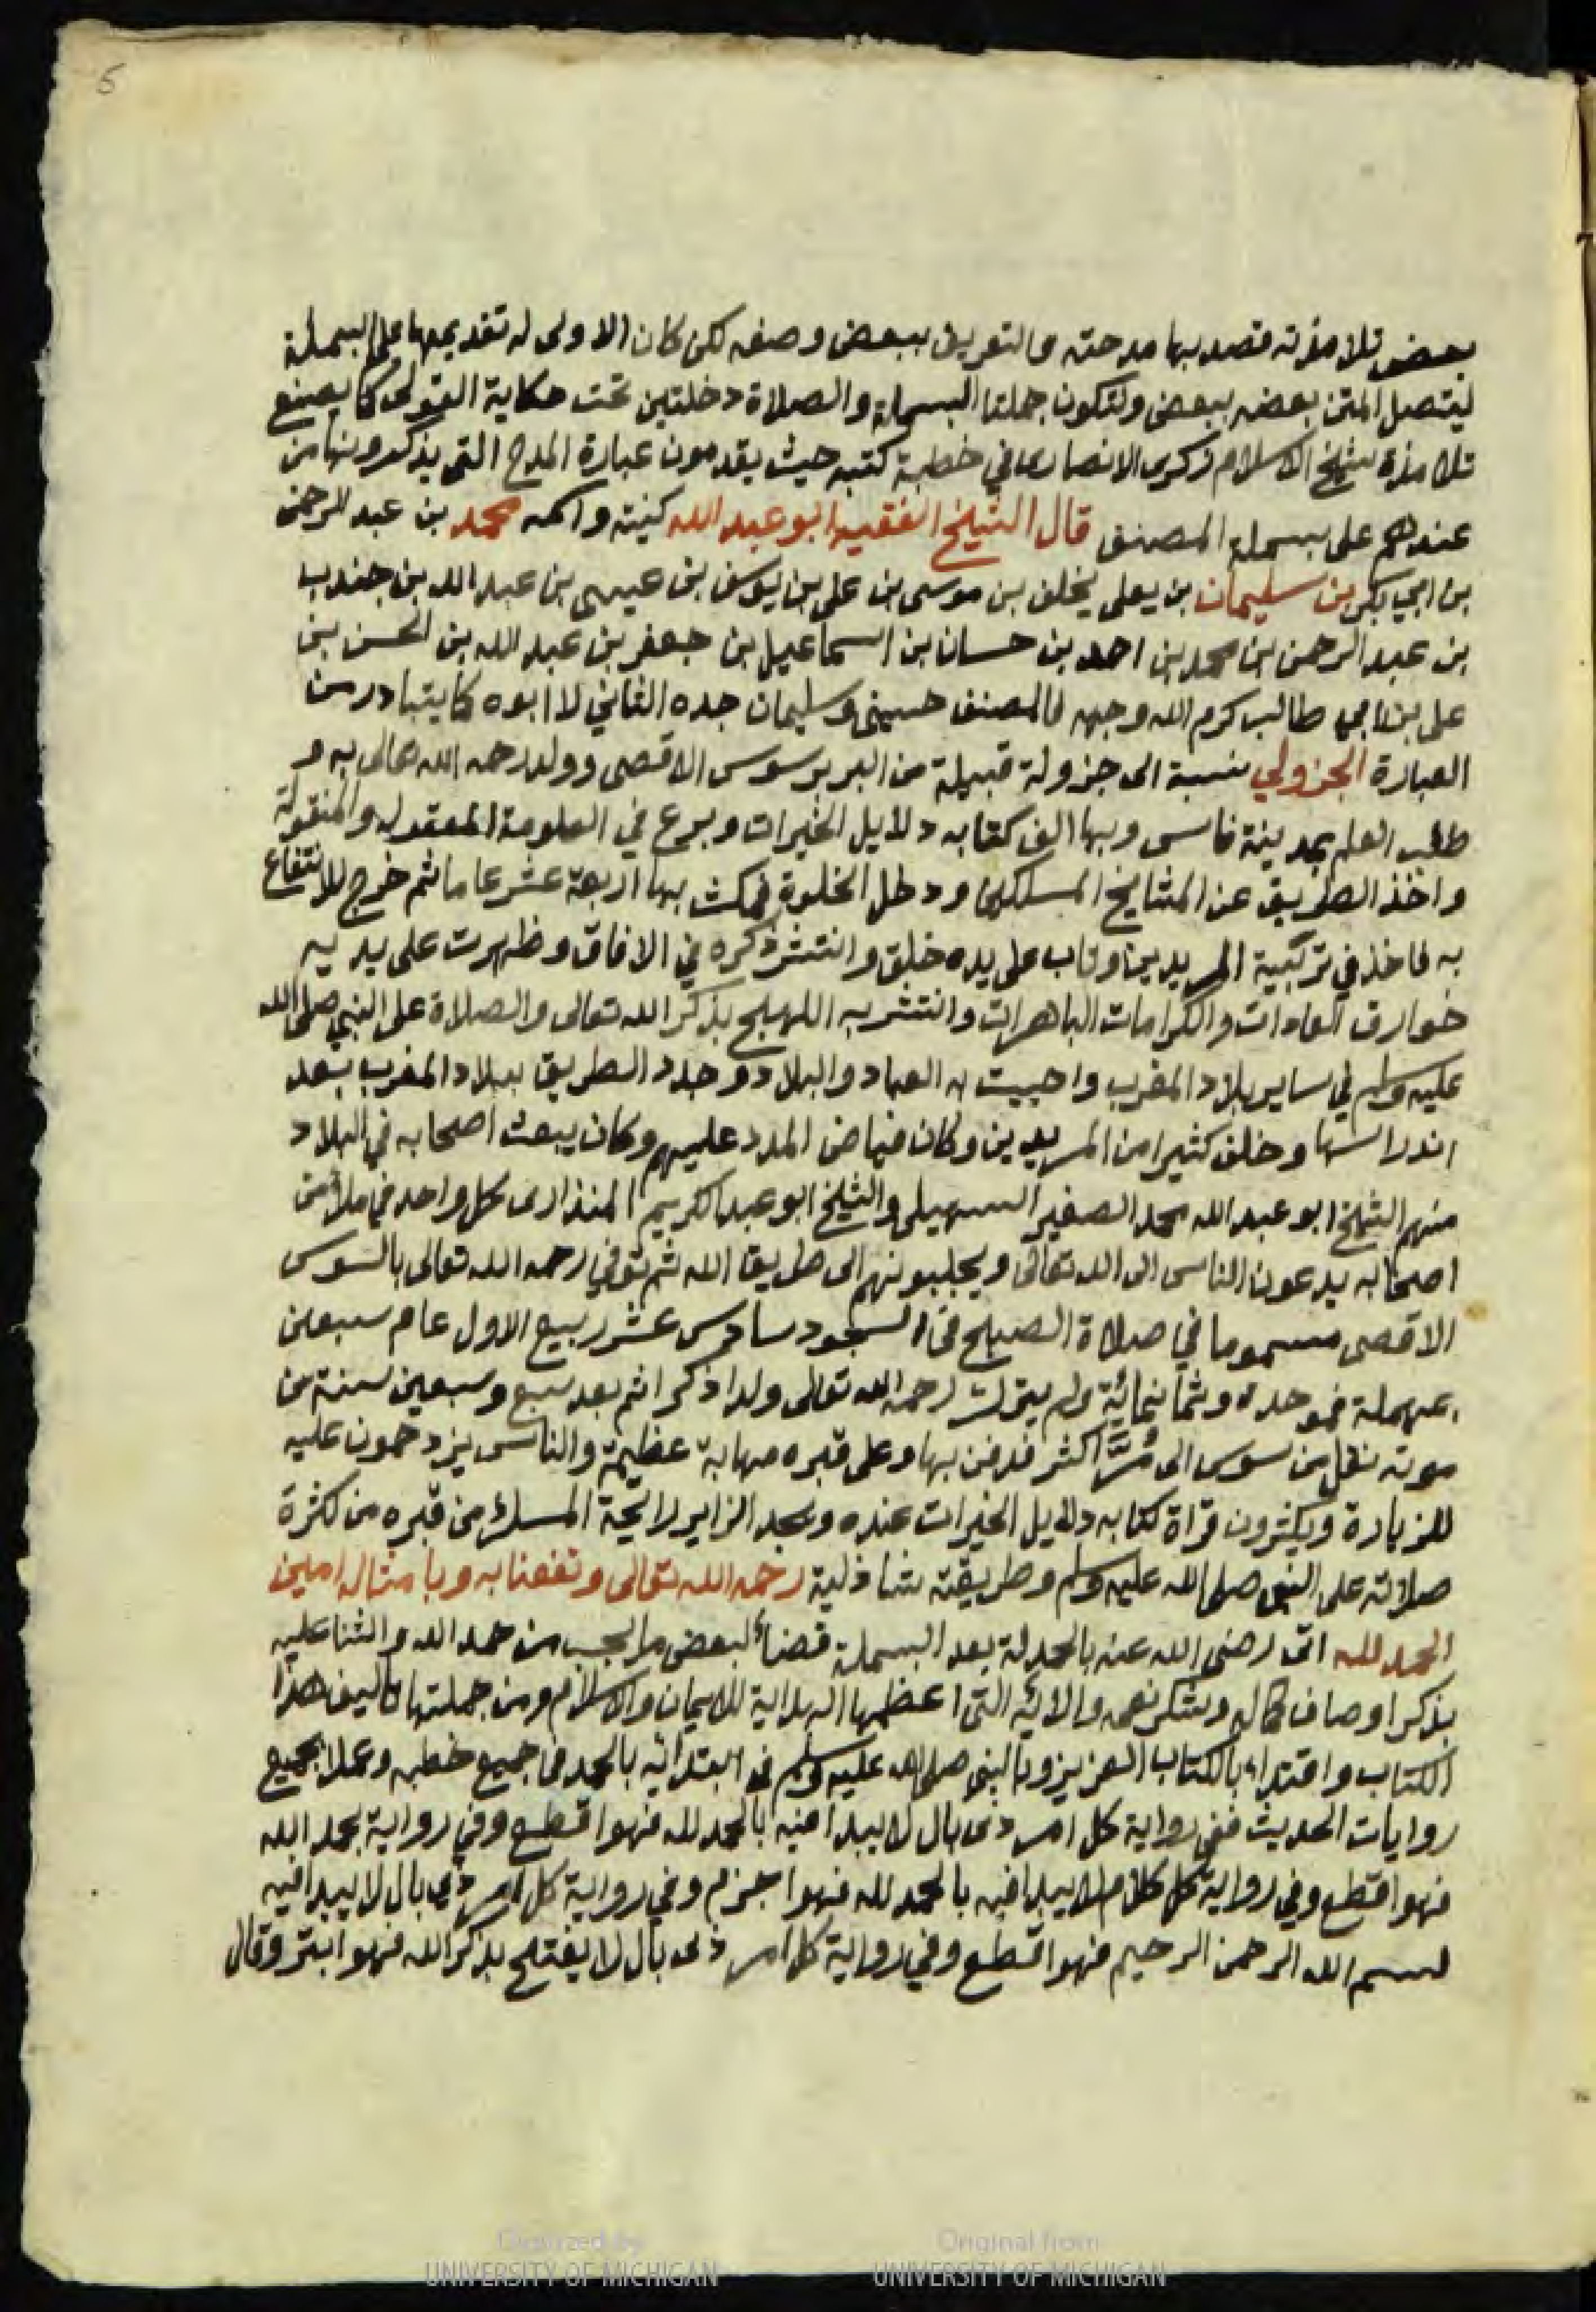 5
بعض تلامذته قصد بها مدحته والتعريف ببعض وصفه لكن كان الاولى له تقديمها على البسملة
ليتصل المتن بعضه ببعض ولتكون جملتا البسملة والصلاة دخلتين تحت حكاية القول كما يصنع
تلامذة شيخ الاسلام زكرى الانصارى في خطبة كتبه حيث يقدمون عبارة المدح التى يذكرونها من
عندهم على بسملة المصنف قال الشيخ الفقيه ابو عبد الله كنيته واسمه محمد بن عبد الرحمن
بن ابي بكر بن سليمان بن يعلى يخلف بن موسى بن على بن يوسف بن عيسى بن عبد الله بن جندب
بن عبد الرحمن بن محمد بن احمد بن حسان بن اسماعيل بن جعفر بن عبد الله بن الحسن بن
على بن ابي طالب كرم الله وجهه فالمصنف حسينى وسليمان جده الثاني لا ابوه كما يتبادر من
العبارة الجزولي نسبة الى جزولة قبيلة من البربر بسوس الاقصى وولد رحمه الله تعالى به و
طلب العلم بمدينة فاس وبها الف كتابه دلايل الخيرات وبرع في العلومة المعقوله والمنقولة
واخذ الطريق عن المشايخ المسلكين ودخل الخلوة فمكث بها اربعة عشر عاما ثم خرج للانتفاع
به فاخذ في تربية المريدين وتاب على يده خلق وانتشر ذكره في الافاق وظهرت على يديه
خوارق العادات والكرامات الباهرات وانتشر به اللهج بذكر الله تعالى والصلاة على النبي صلى الله
عليه وسلم في ساير بلاد المغرب واحييت به العباد والبلاد وجدد الطريق ببلاد المغرب بعد
اندراسها وخلف كثيرا من المريدين وكان فياض المدد عليهم وكان يبعث اصحابه في البلاد
منهم الشيخ ابو عبد الله محمد الصغير السهيلى والشيخ ابو عبد الكريم المنذارى كل واحد في ملأ من
اصحابه يدعون الناس الى الله تعالى ويجلبونهم الى طريق الله ثم توفي رحمه الله تعالى بالسوس
الاقصى مسموما في صلاة الصبح في السجود سادس عشر ربيع الاول عام سبعين
بمهملة فموحدة وثمانمائة ولم يترك رحمه الله تعالى ولدا ذكرا ثم بعد سبع وسبعين سنة من
موته نقل من سوس الى مراكش فدفن بها وعلى قبره مهابة عظيمة والناس يزدحمون عليه
للزيارة ويكثرون قراة كتابه دلايل الخيرات عنده ويجد الزاير رايحة المسك من قبره من كثرة
صلاته على النبى صلى الله عليه وسلم وطريقته شاذلية رحمه الله تعالى ونفعنا به وبامثاله امين
الحمد لله اتى رضى الله عنه بالحمدلة بعد البسملة قضاء لبعض ما يجب من حمد الله والثنا عليه
بذكر اوصاف كماله وشكر نعمه والائه التى اعظمها الهداية للايمان والاسلام ومن جملتها تاليف هذا
الكتاب واقتداء بالكتاب العزيز وبالنبى صلى الله عليه وسلم فى ابتدائه بالحمد فى جميع خطبه وعملا بجميع
روايات الحديث ففى رواية كل امر ذى بال لا يبدا فيه بالحمد لله فهو اقطع وفي رواية بحمد الله
فهو اقطع وفي رواية كل كلام لا يبدا فيه بالحمد لله فهو اجزم وفي رواية كل امر ذى بال لا يبدا فيه
لبسم الله الرحمن الرحيم فهو اقطع وفي رواية كل امر ذى بال لا يفتتح بذكر الله فهو ابتر وقال
Digitized by
UNIVERSITY OF MICHIGAN
Original from
UNIVERSITY OF MICHIGAN